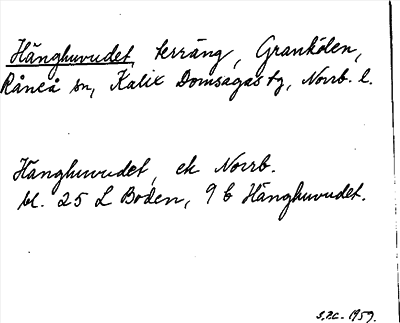 Hänghuvudet, terräng, Grankölen,
Råneå sn, Kalix Domsagas tg, Norrb. l.
Hänghuvudet, ek Norrb.
bl. 25 L Boden, 9 b Hänghuvudet.
1959.